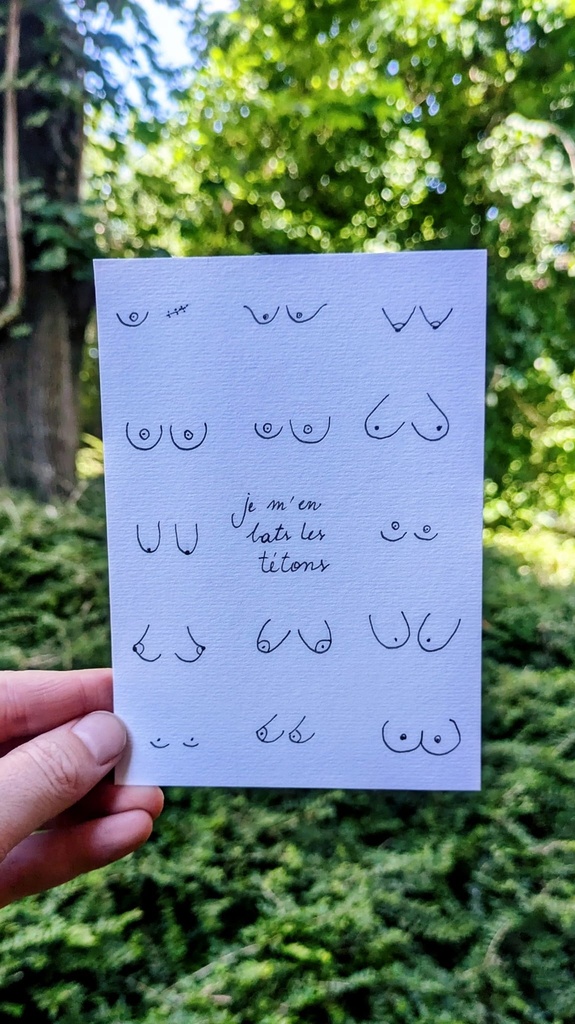 je m'en
bats les
tétons